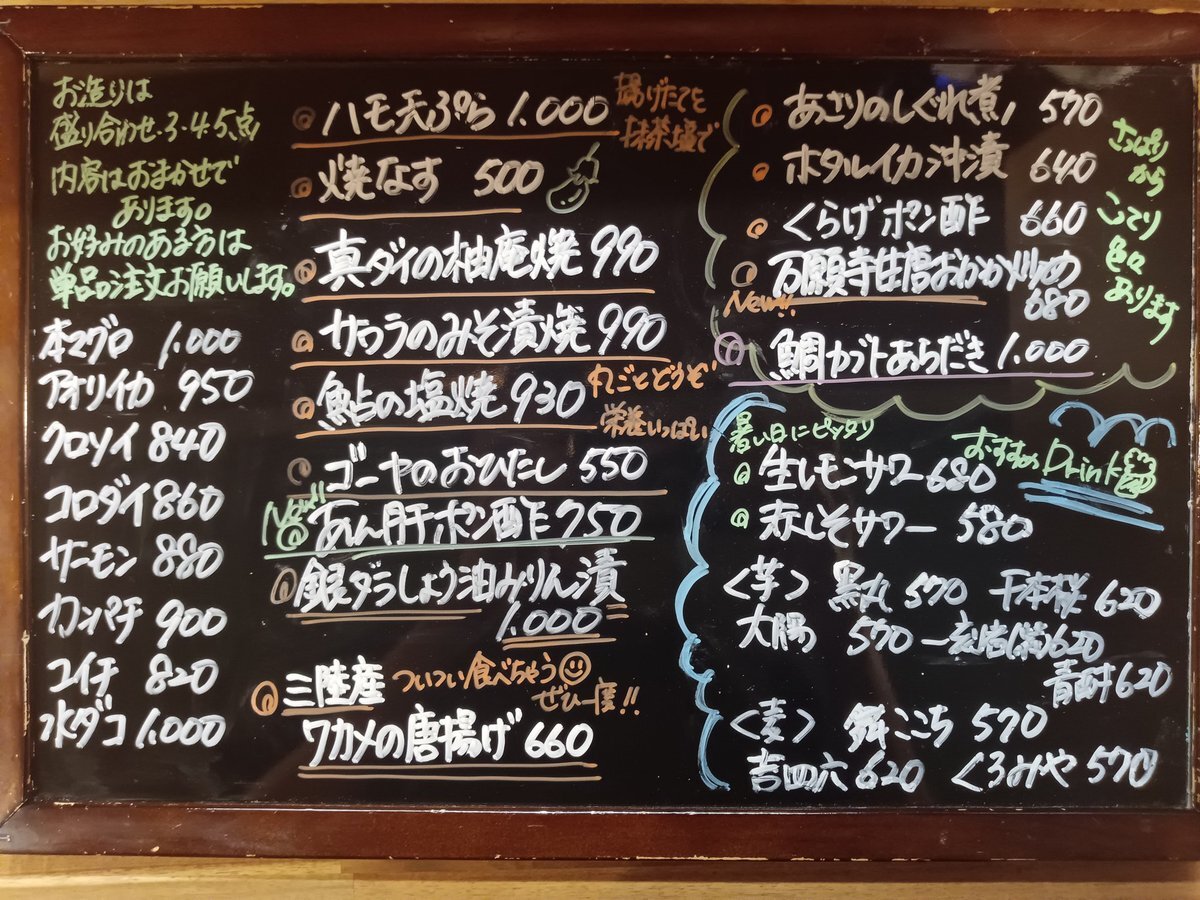 お造りは
盛り合わせ・3・4・5、点
内容はおまかせで
あります。
お好みのある方は
単品ご注文お願いします。
本マグロ 1.000
アオリイカ 950
クロソイ 840
コロダイ 860
サーモン 880
カンパチ 900
コイチ 820
水ダコ 1.000
ハモ天ぷら 1.000
揚げたてを
抹茶塩で
焼なす 500
真ダイの柚庵焼 990
サワラのみそ漬焼 990
鮎の塩焼 930
丸ごとどうぞ
栄養いっぱい
ゴーヤのおひたし 550
New!!
あん肝ポン酢 750
銀ダラしょう油みりん漬
1.000
三陸産
ついつい食べちゃう
ぜひ一度!!
ワカメの唐揚げ 660
あさりのしぐれ煮 570
ホタルイカ沖漬 640
くらげポン酢 660
万願寺唐おかか炒め
New!!
680
鯛カブトあらだき 1.000
さっぱり
から
こてり
色々
あります
暑い日にピッタリ
おすすめ Drink
生レモンサワー 680
赤しそサワー 580
<芋> 黒丸 570 千本桜 620
大陽 570 一刻岩(紫)620
青酎 620
<麦> 舞ここち 570
吉四六 620 くろみや 570